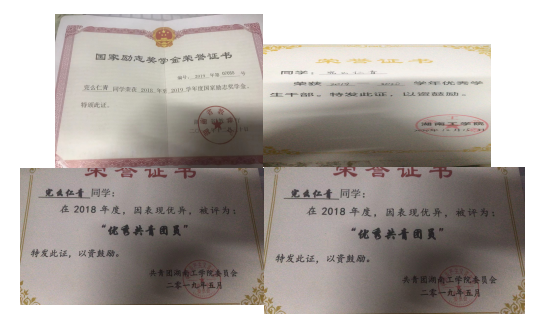 国家励志奖学金荣誉证书
完么仁青 同学荣获 2018 年至 2019 学年度国家励志奖学金。
特颁此证。
荣誉证书
同学:
荣获 学年优秀学
生干部。特发此证，以资鼓励。
湖南工学院
荣誉证书
完么仁青 同学:
在 2018 年度，因表现优异，被评为:
“优秀共青团员”
特发此证，以资鼓励。
共青团湖南工学院委员会
二零一九年五月
荣誉证书
完么仁青 同学:
在 2018 年度，因表现优异，被评为:
“优秀共青团员”
特发此证，以资鼓励。
共青团湖南工学院委员会
二零一九年五月